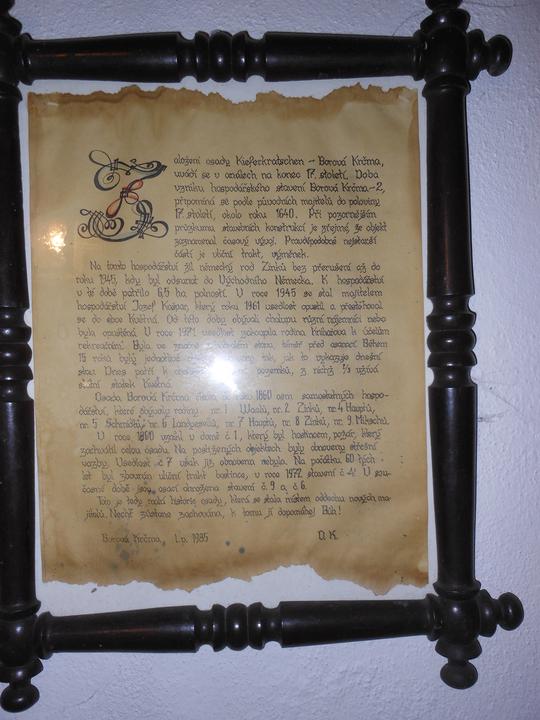 Založení osady Kieferkratschen - Borová Krčma,
uvádí se v análech na konec 17. století. Doba
vzniku hospodářského stavení Borová Krčma-2,
připomíná se podle původních majitelů do poloviny
17. století, okolo roku 1640. Při pozornějším
průzkumu stavebních konstrukcí je zřejmé, že objekt
zaznamenal časový vývoj. Pravděpodobně nejstarší
částí je uliční trakt, výměnek.
Na tomto hospodářství žil německý rod Zinků bez přerušení až do
roku 1945, kdy byl odsunut do Východního Německa. K hospodářství
v té době patřilo 6,5 ha polností. V roce 1945 se stal majitelem
hospodářství Josef Kašpar, který roku 1961 usedlost opustil a přestěhoval
se do obce Květná. Od této doby obývali chalupu různí nájemníci nebo
byla opuštěna. V roce 1971 usedlost zakoupila rodina k účelům
rekreačním. Byla ve značně stavu, téměř před asanací. Během
15 roků byly tak, jak to vykazuje dnešní
stav. Dnes patří k pozemků, z nichž 2/3 užívá
statek Květná.
Osada Borová Krčma měla do roku 1860 osm samostatných hospo-
dářství, které obývaly rodiny: nr. 1 Wanků, nr. 2 Zinků, nr. 4 Hauptů,
nr. 5 Schmidtů, nr. 6 nr. 7 Hauptů, nr. 8 Zinků, nr. 9 Mikschů.
V roce 1860 vznikl v domě č. 1, který byl hostincem, požár, který
zachvátil celou osadu. Na postižených objektech byly obnoveny střešní
vazby. Usedlost č. 7 však již obnovena nebyla. Na počátku 60-tých
let byl zbourán uliční trakt hostince, v roce 1972 stavení č. 4. V sou-
časné době jsou asací ohrožena stavení č. 9 a č. 6.
Toto je tedy malá historie osady, která se stala místem oddechu nových ma-
jitelů. Nechť zůstane zachována, k tomu jí dopomáhej Bůh!
Borová Krčma, l.p. 1985 O. K.